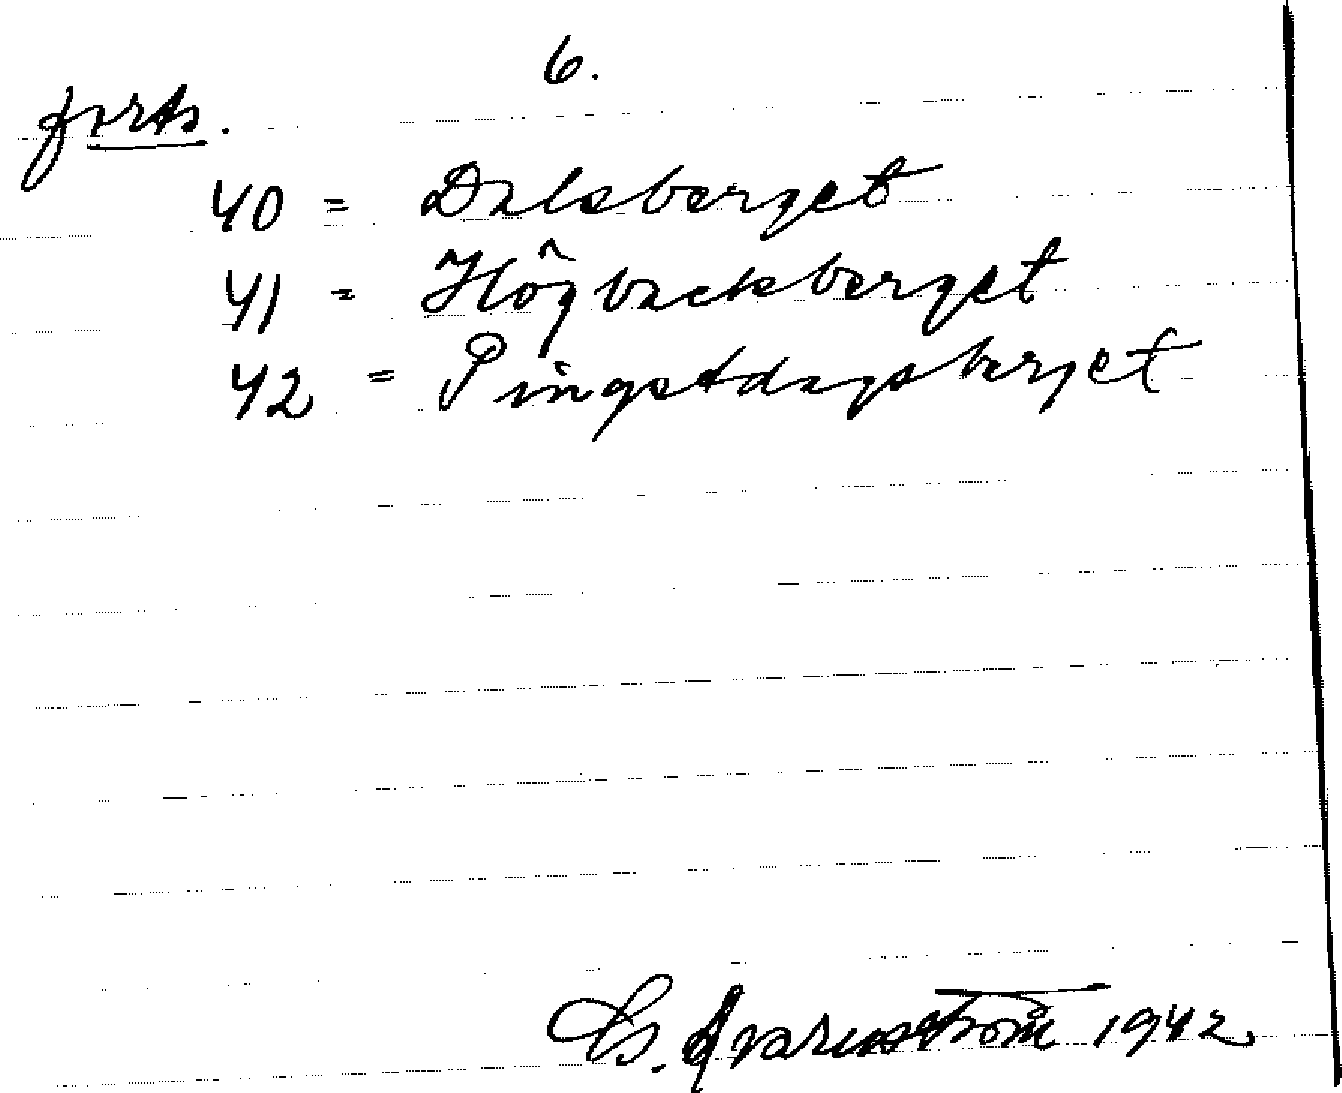 6.
forts.
40 = Dalsberget
41 = Högbacksberget
42 = Pingstdagsberget
1942